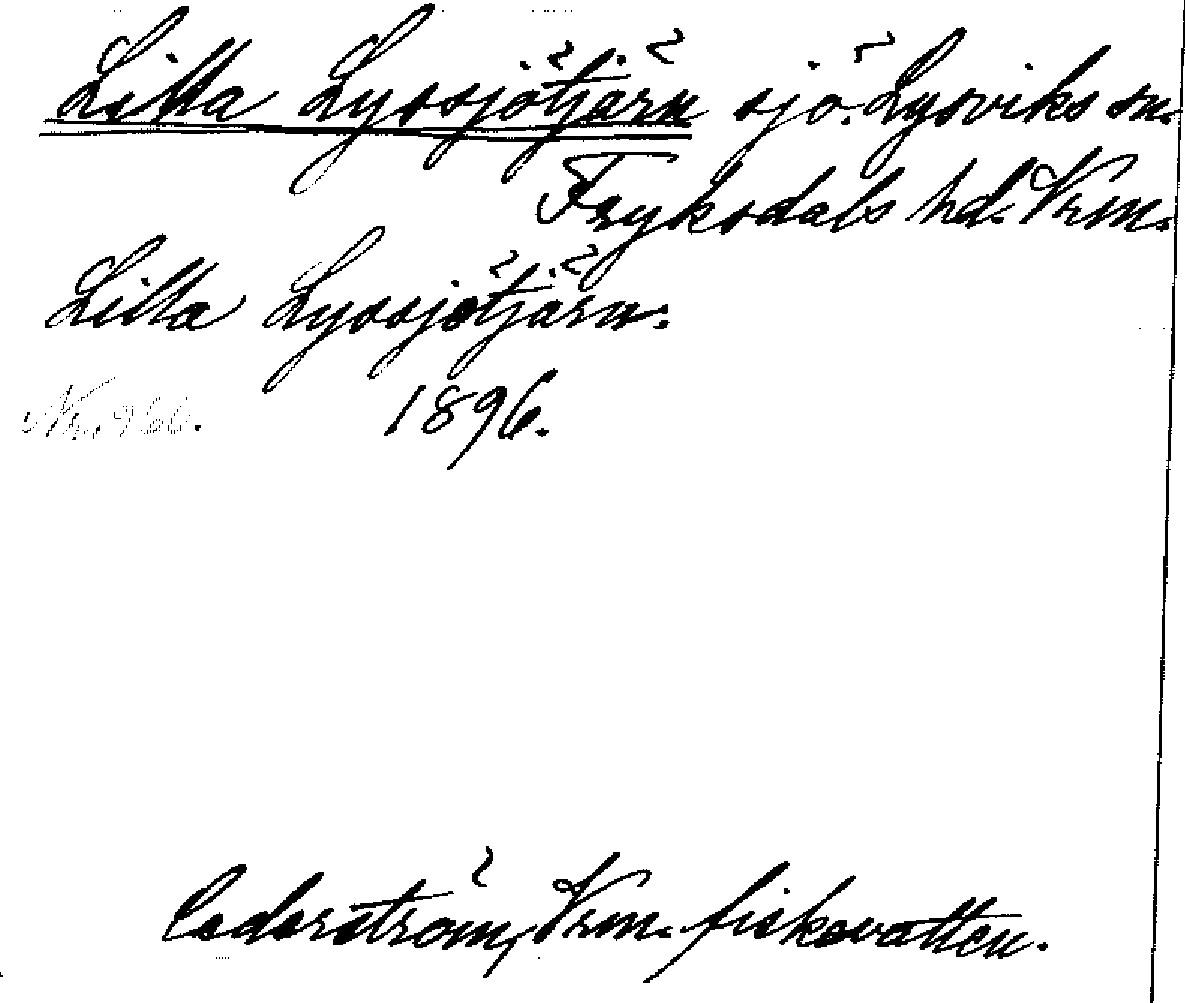 Lilla Lyssjötjärn sjö. Lysviks sn.
Fryksdals hd. Vrm.
Lilla Lyssjötjärn.
Nr. 960. 1896.
Cederström, Vrm. fiskevatten.